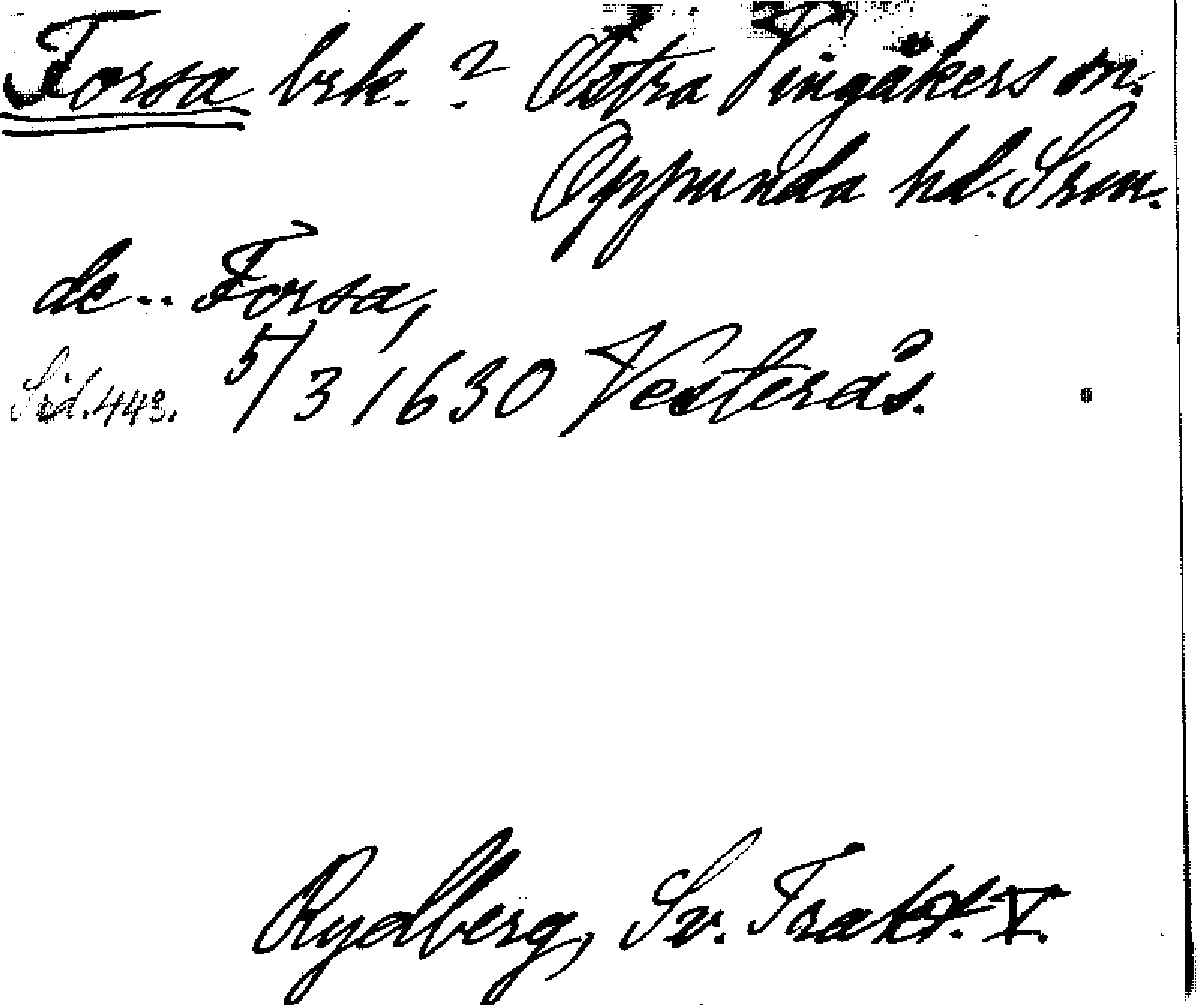 Forsa brk. ? Östra Vingåkers sn.
Oppunda hd. Srm.
de .. Forsa,
Sid. 443. 5/3 1630 Vesterås.
Rydberg, Sv. Trakt. V.